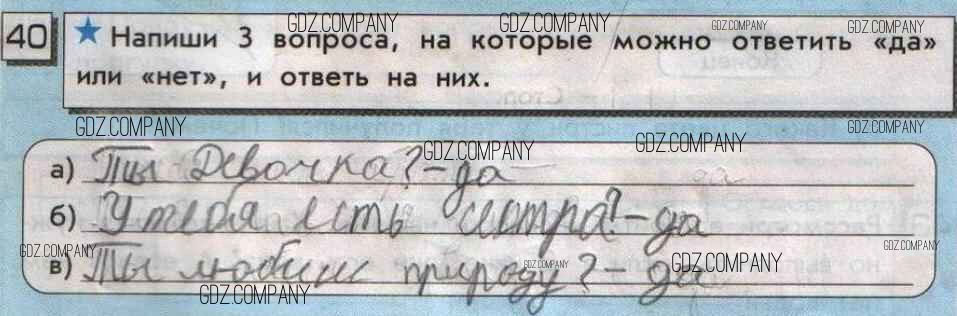 GDZ.COMPANY GDZ.COMPANY GDZ.COMPANY GDZ.COMPANY
40 Напиши 3 вопроса, на которые можно ответить «да»
или «нет», и ответь на них.
GDZ.COMPANY GDZ.COMPANY GDZ.COMPANY GDZ.COMPANY
а) Ты Девочка? – да
б) У тебя есть сестра? – да
GDZ.COMPANY GDZ.COMPANY
в) Ты любиш природу? – да
GDZ.COMPANY GDZ.COMPANY GDZ.COMPANY